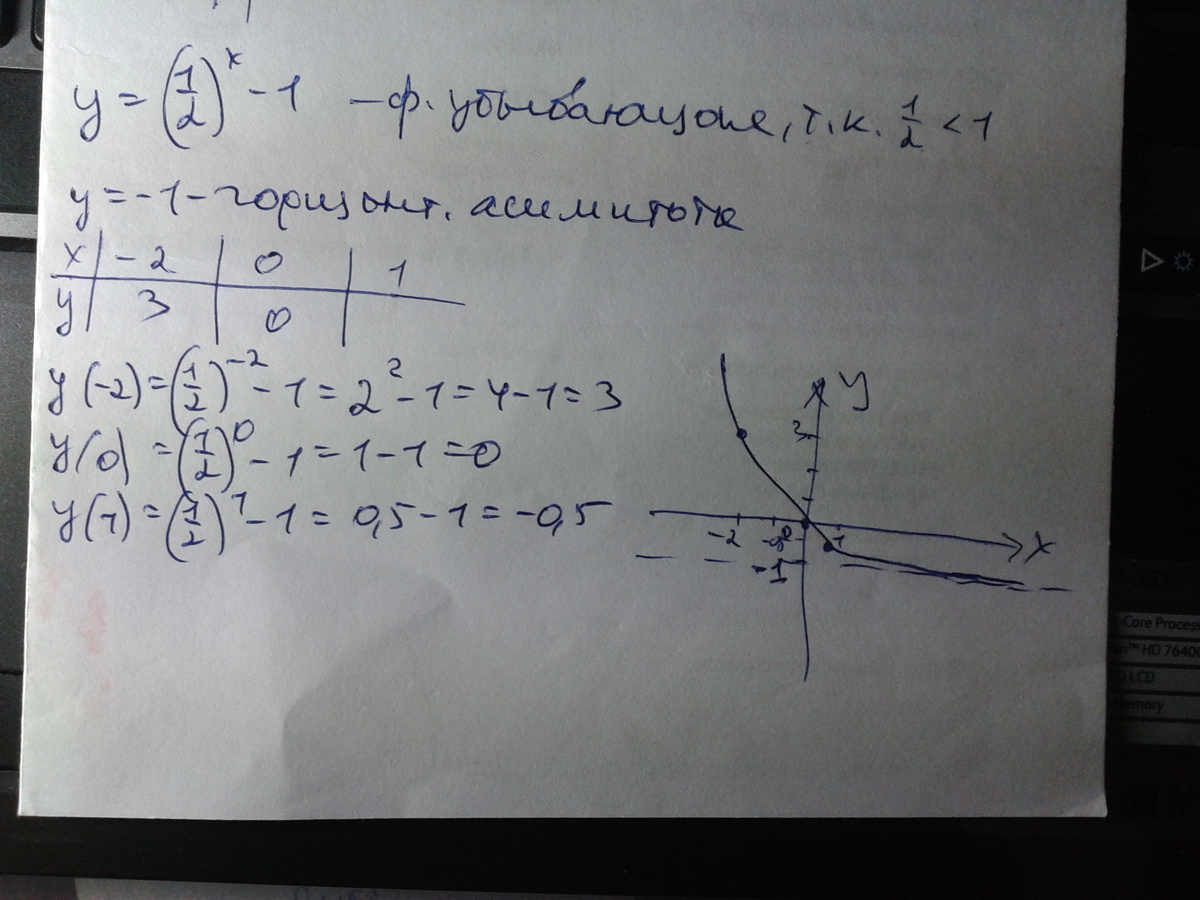 y = (1/2)^x - 1 - ф. убывающая, т.к. 1/2 < 1
y = -1 - горизонт. асимптота
x | -2 | 0 | 1
y | 3 | 0 |
y(-2) = (1/2)^-2 - 1 = 2^2 - 1 = 4 - 1 = 3
y(0) = (1/2)^0 - 1 = 1 - 1 = 0
y(1) = (1/2)^1 - 1 = 0,5 - 1 = -0,5
y
3
-2 0 1 x
-1
-Core Process
HD 7640
LCD